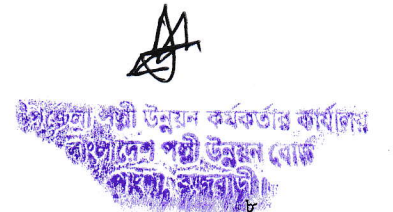 উপজেলা পল্লী উন্নয়ন কর্মকর্তার কার্যালয়
বাংলাদেশ পল্লী উন্নয়ন বোর্ড
পাংশা, রাজবাড়ী।
৮